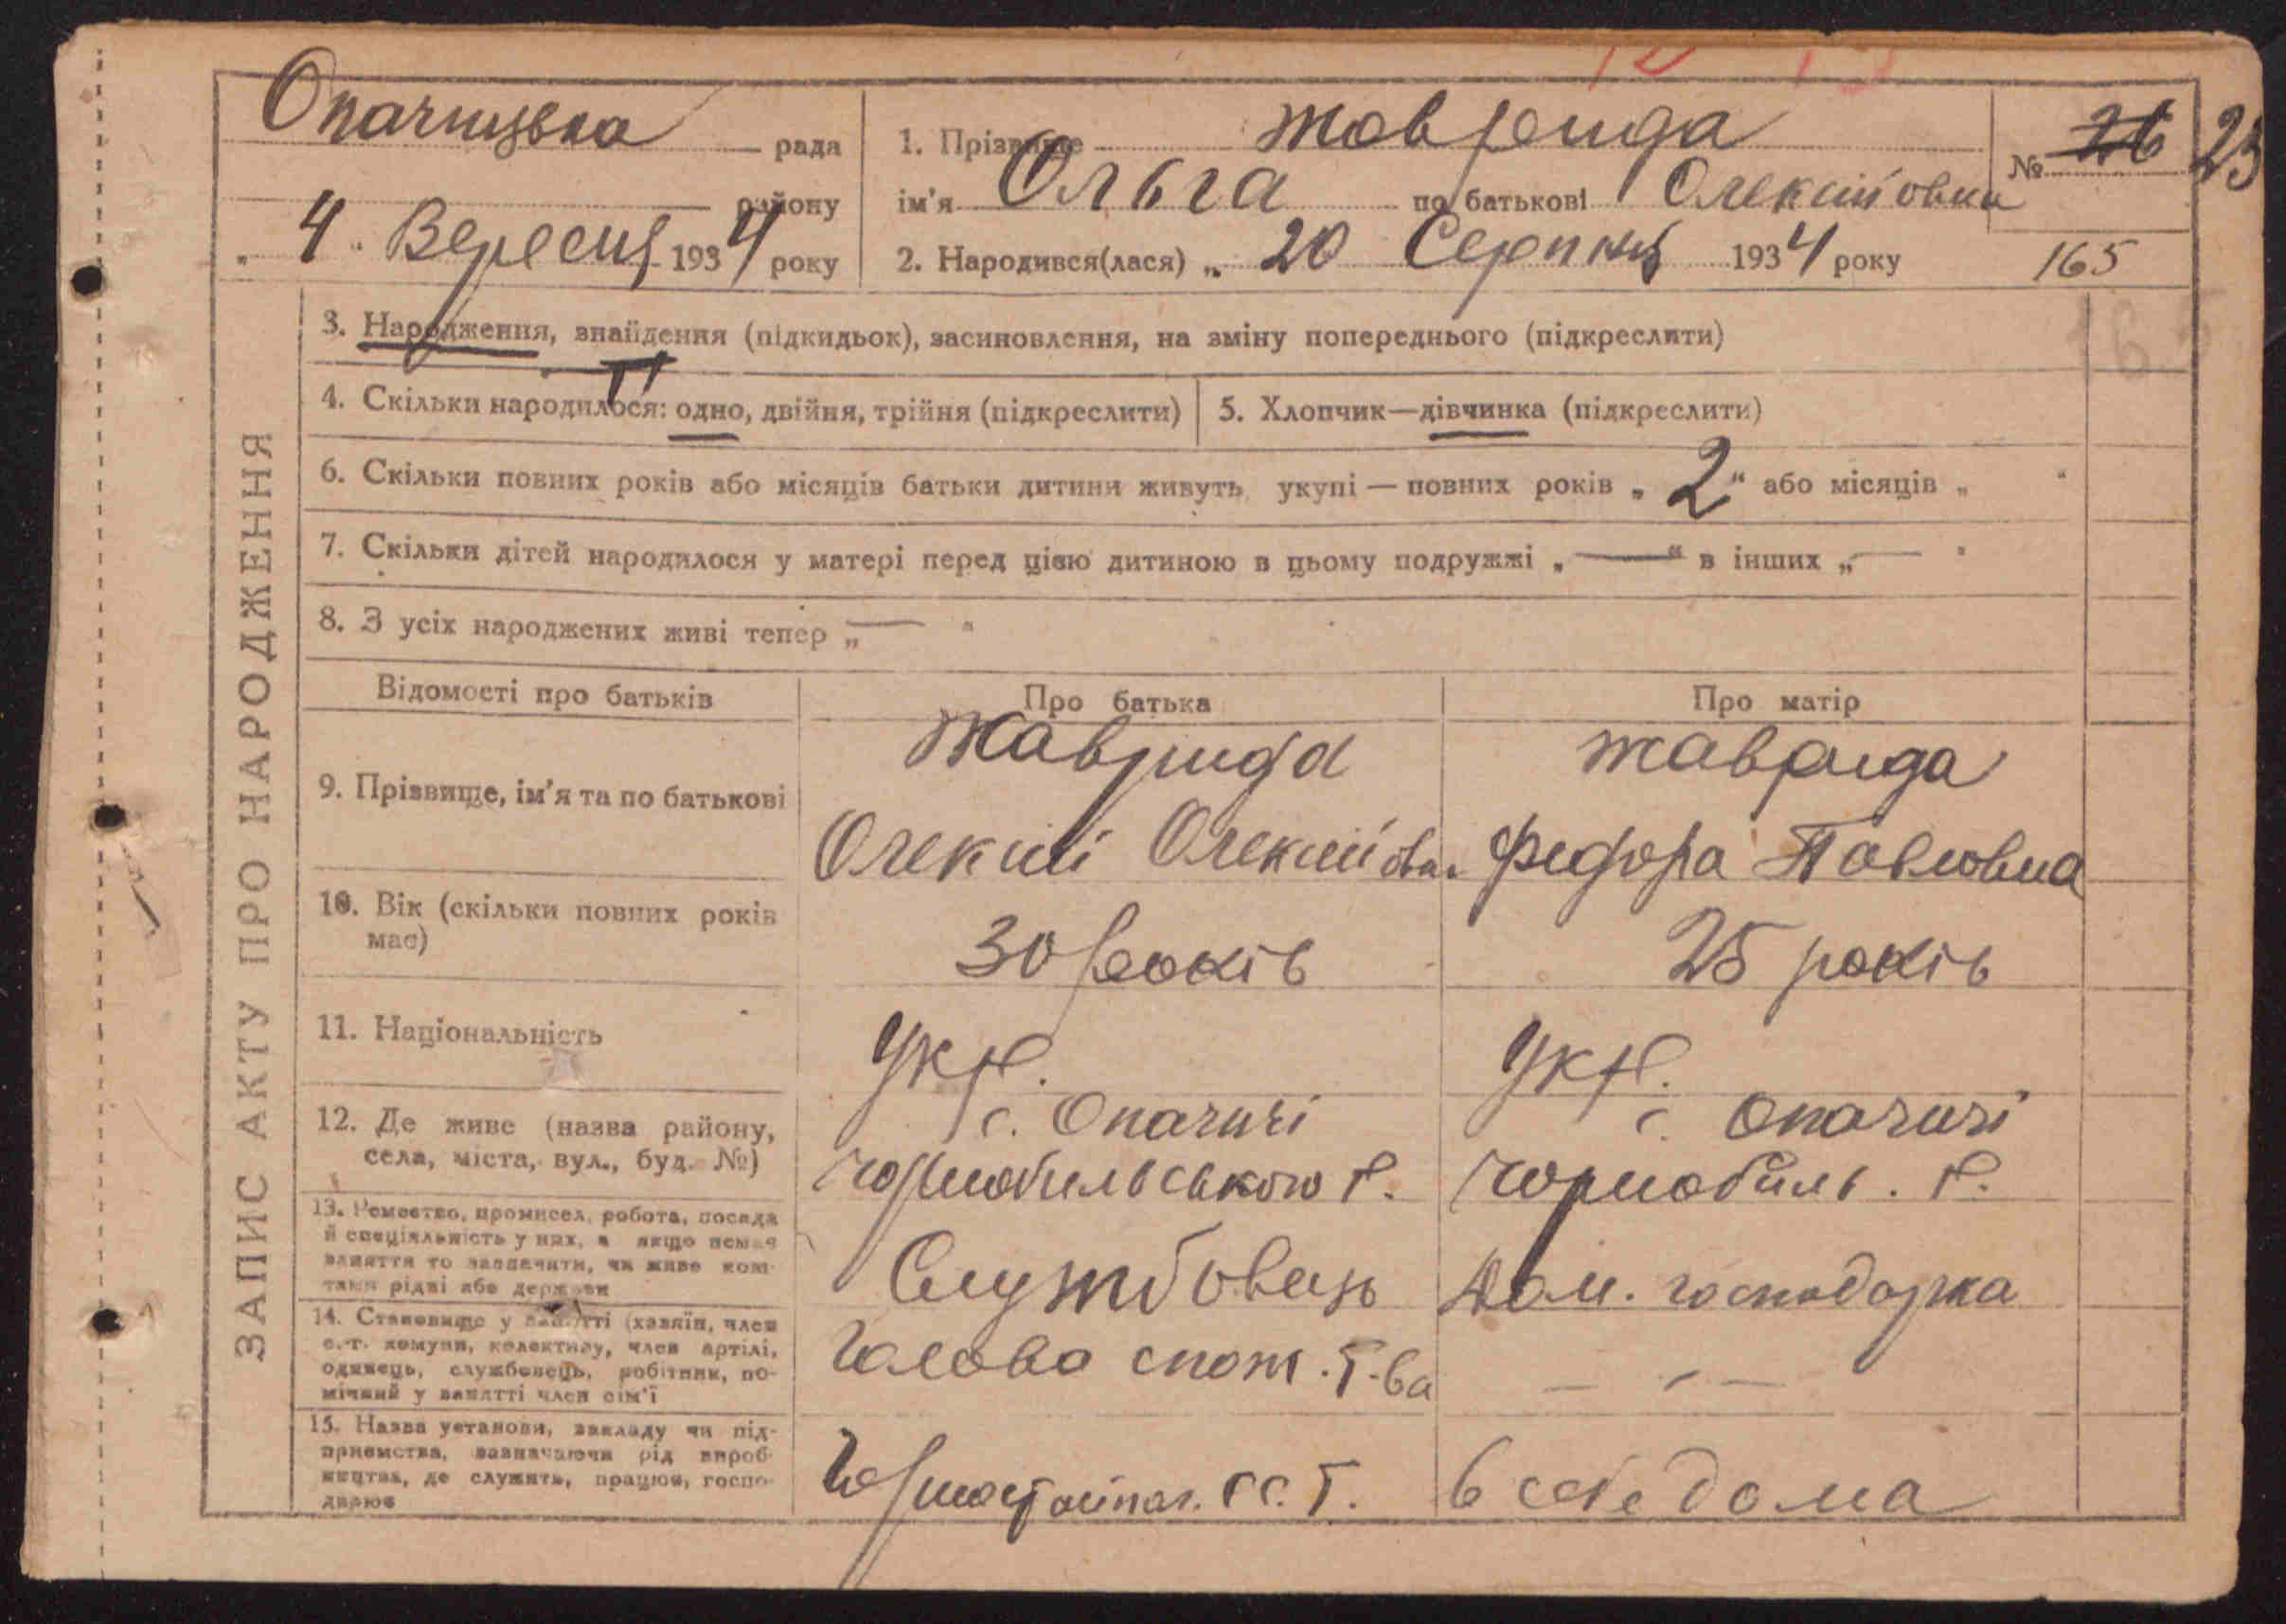 Опачицька рада
1. Прізвище Жаврида
№ 26 25
району
ім'я Ольга по батькові Олексійовна
„ 4 " Вересня 1934 року
2. Народився(лася) „ 20 Серпня 1934 року
165
ЗАПИС АКТУ ПРО НАРОДЖЕННЯ
3. Народження, знайдення (підкидьок), засиновлення, на зміну попереднього (підкреслити)
4. Скільки народилося: одно, двійня, трійня (підкреслити)
5. Хлопчик—дівчинка (підкреслити)
6. Скільки повних років або місяців батьки дитини живуть укупі — повних років „ 2 " або місяців „ "
7. Скільки дітей народилося у матері перед цією дитиною в цьому подружжі „ — " в інших „ — "
8. З усіх народжених живі тепер „ — "
Відомості про батьків
Про батька
Про матір
9. Прізвище, ім'я та по батькові
Жаврида
Олексій Олексійов.
Жаврида
Федора Павловна
10. Вік (скільки повних років має)
30 років
25 років
11. Національність
Укр.
Укр.
12. Де живе (назва району,
села, міста, вул., буд. №)
с. Опачичі
Чорнобильського р.
с. Опачичі
Чорнобиль. р.
13. Ремество, промисел, робота, посада
й спеціяльність у них, а якщо немая
заняття то зазначити, чи живе кош-
тами рідні або держави
Службовець
Дом. господарка
14. Становище у занятті (хазяїн, член
с.-г. комуни, колективу, член артілі,
одинець, службовець, робітник, по-
мічний у занятті член сім'ї
Голова спож. т-ва
— — —
15. Назва установи, закладу чи під-
приємства, зазначаючи рід вироб-
ництва, де служить, працює, госпо-
дарює
Горностайпол. СС.Т.
в себе дома